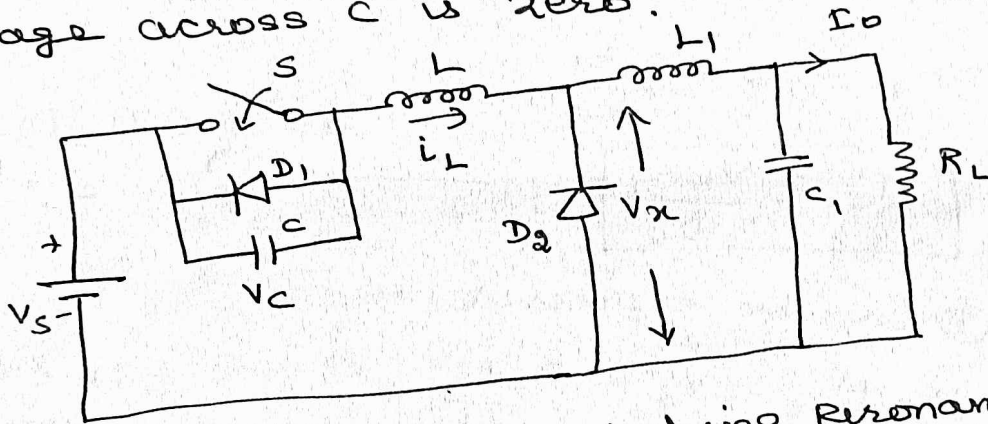 age across C is zero.
Io
S
L
L1
iL
D1
C
VC
+
VS -
D2
Vx
C1
RL
Resonan